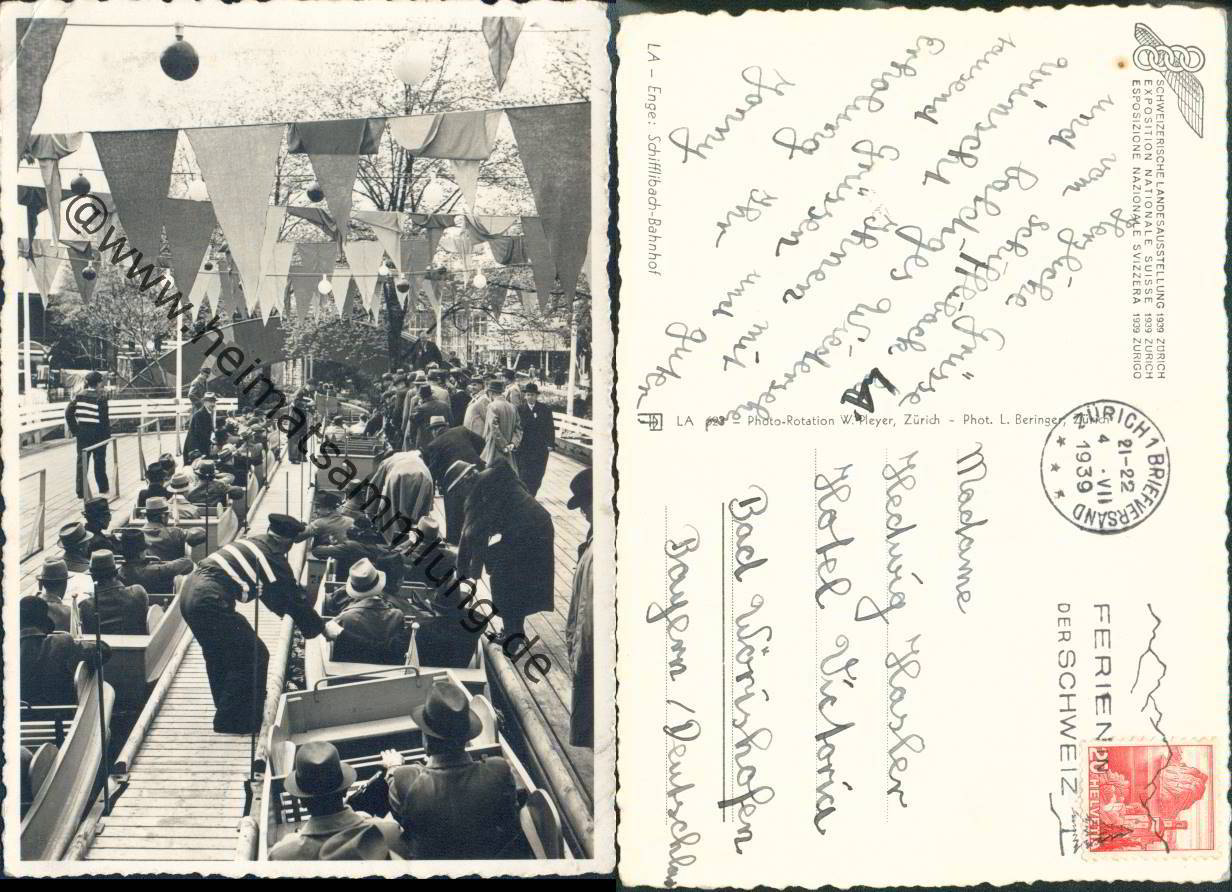 @www.heimatsammlung.de
SCHWEIZERISCHE LANDESAUSSTELLUNG 1939 ZÜRICH
EXPOSITION NATIONALE SUISSE 1939 ZURICH
ESPOSIZIONE NAZIONALE SVIZZERA 1939 ZURIGO
Herzliche Grüsse
vom Schiffli-bach LA
und baldiges Wiedersehe
wünscht Ihnen mit
tausend Grüssen
Erholung Ihr und
Hanny
LA – Enge: Schifflibach-Bahnhof
LA 623 – Photo-Rotation W. Pleyer, Zürich – Phot. L. Beringer, Zürich
ZÜRICH 1 BRIEFVERSAND
21-22
4.VII
1939
FERIEN
DER SCHWEIZ
20
HELVETIA
Madame
Hedwig Hasler
Hotel Victoria
Bad Wörishofen
Bayern / Deutschlan